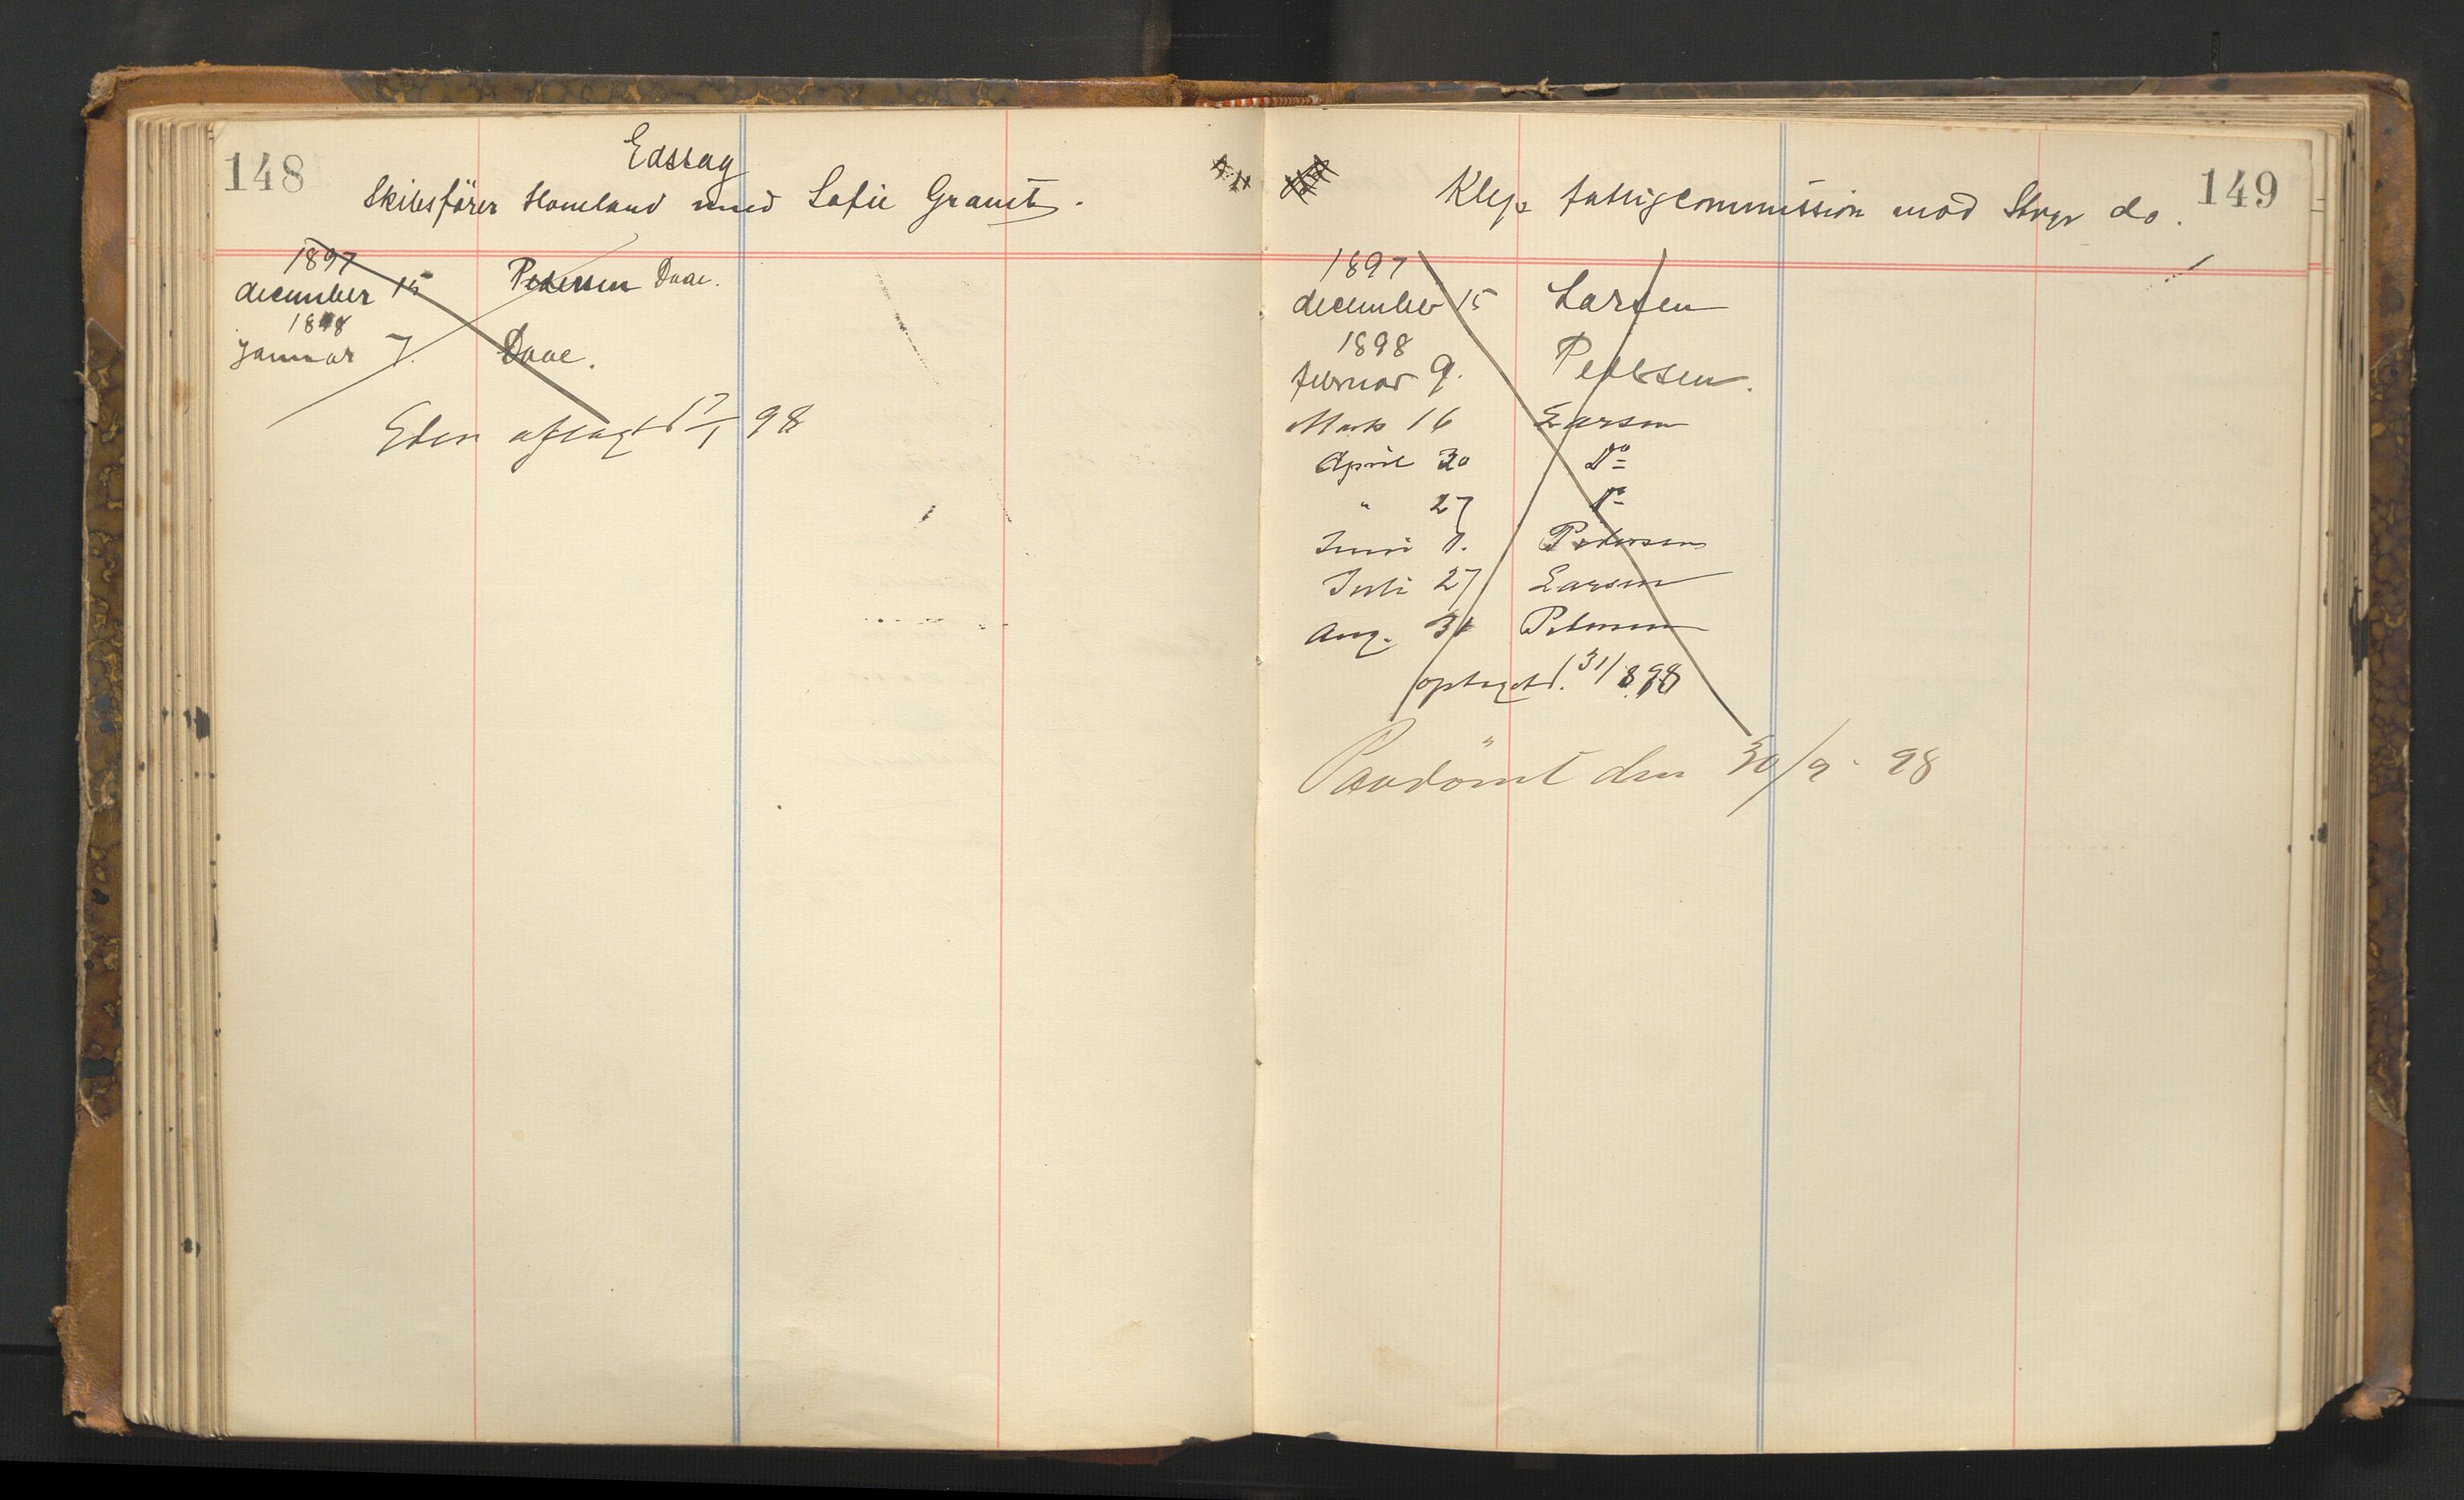 148
Edssag
Skibsfører Homeland mod Sofie Granit.
1897
december 15 Pedersen Daae.
1898
januar 7. Daae.
Eden aflagt d 7/1 98
149
Klep fattigcommission mod Strys do.
1897
december 15 Larsen
1898
februar 9. Pedersen.
Marts 16 Larsen
April 20 Do
" 27 Do
Juni 8. Pedersen
Juli 27 Larsen
Aug. 31 Pedersen
optaget d. 31/8 98
Paadömt den 30/9 - 98